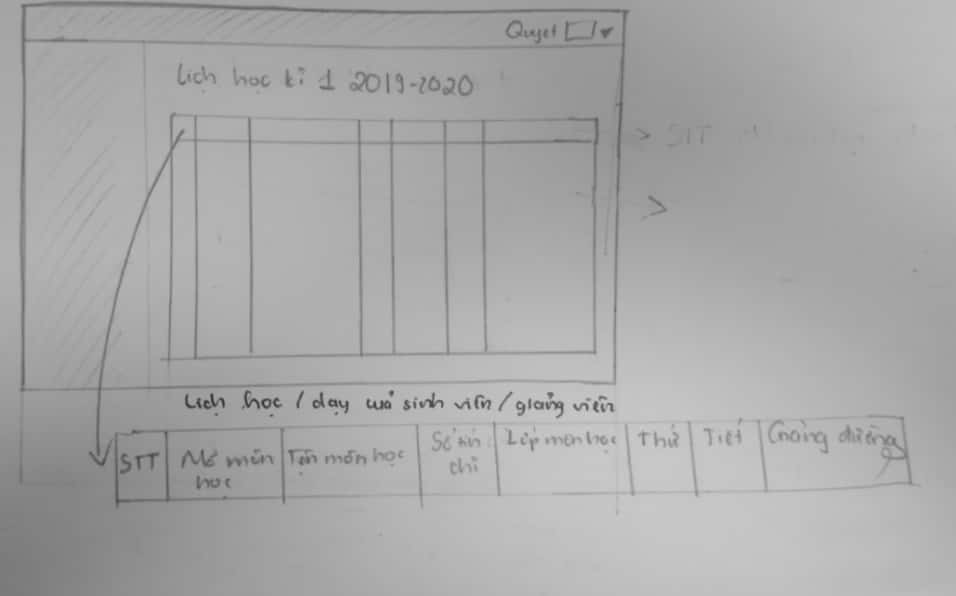 Quyet
Lịch học kì 1 2019-2020
STT
Lịch học / dạy của sinh viên / giảng viên
STT
Mã môn
học
Tên môn học
Số tín
chỉ
Lớp môn học
Thứ
Tiết
Giảng đường